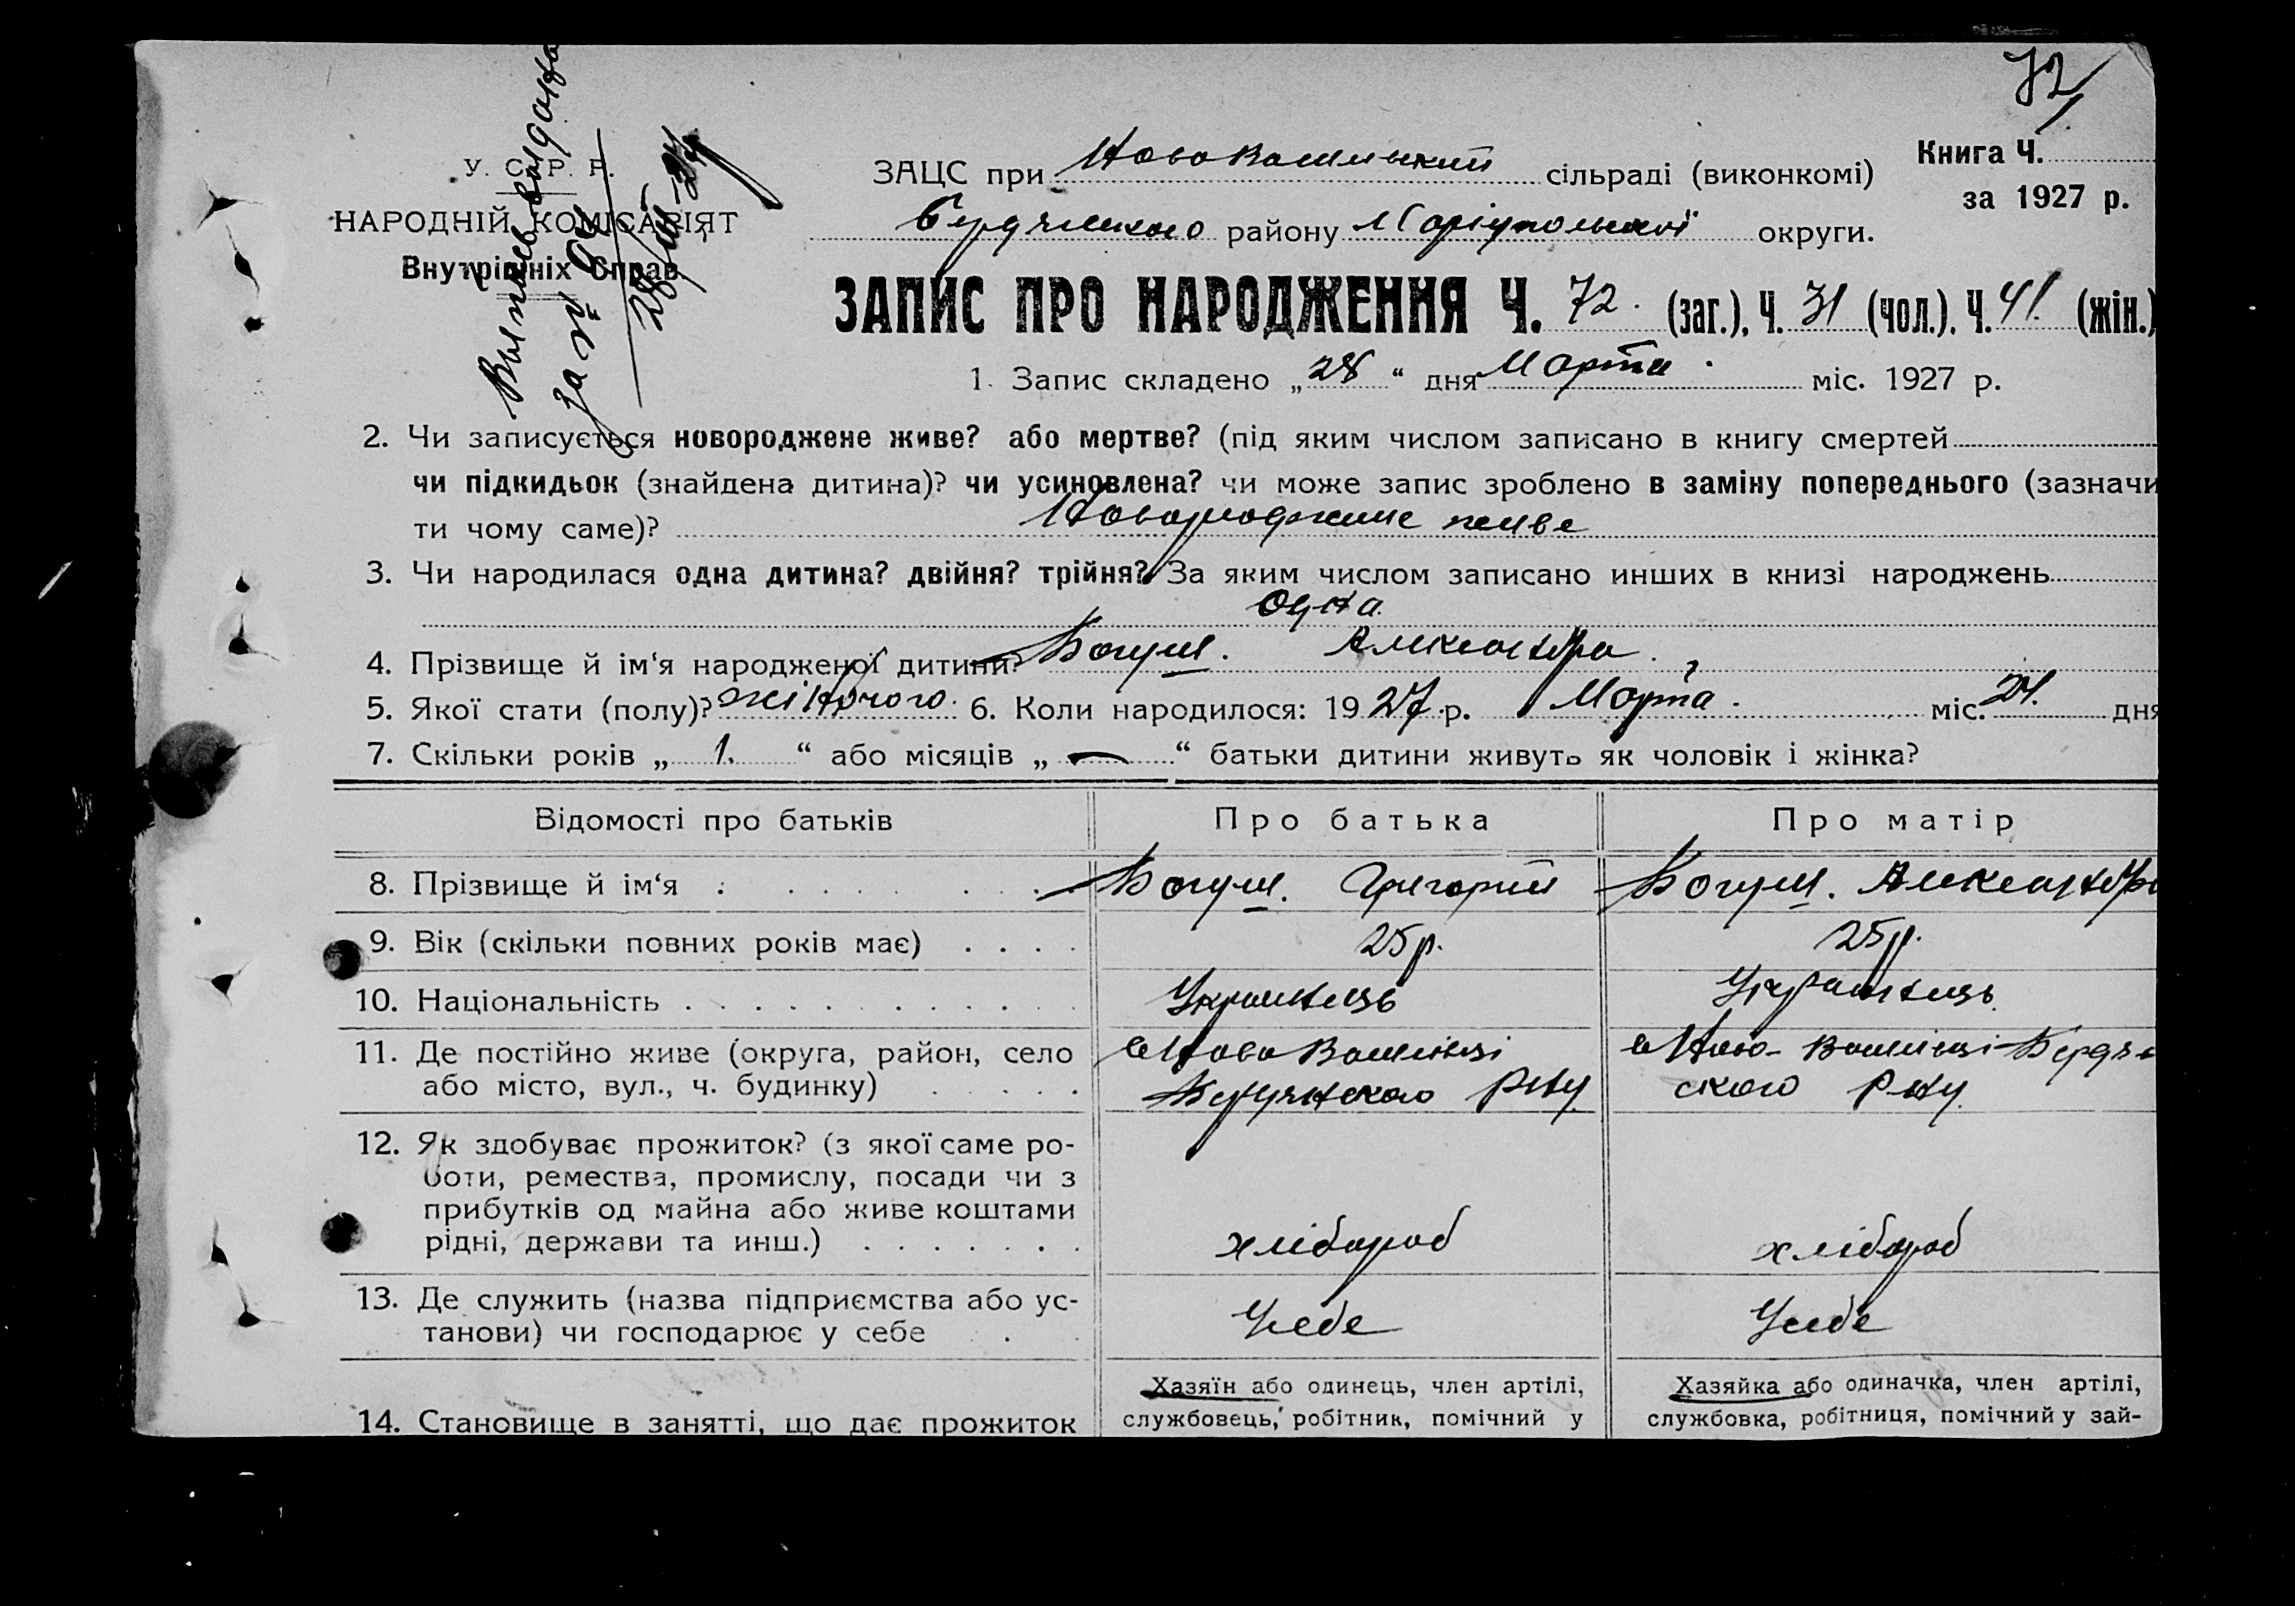 72
У. С. Р. Р.
НАРОДНІЙ КОМІСАРІЯТ
Внутрішніх Справ
Выпись выдана
за №
28/III-27
Книга Ч.
за 1927 р.
ЗАЦС при Ново Васильський сільраді (виконкомі)
Бердянського району Маріупольської округи.
ЗАПИС ПРО НАРОДЖЕННЯ Ч. 72. (заг.), Ч. 31 (чол.), Ч. 41. (жін.)
1. Запис складено „28“ дня Марта. міс. 1927 р.
2. Чи записується новороджене живе? або мертве? (під яким числом записано в книгу смертей
чи підкидьок (знайдена дитина)? чи усиновлена? чи може запис зроблено в заміну попереднього (зазначи
ти чому саме)? Новороджене живе
3. Чи народилася одна дитина? двійня? трійня? За яким числом записано инших в книзі народжень
Одна.
4. Прізвище й ім‘я народженої дитини? Богуш. Александра.
5. Якої стати (полу)? жіночого. 6. Коли народилося: 1927 р. Марта. міс. 24. дня
7. Скільки років „1.“ або місяців „—“ батьки дитини живуть як чоловік і жінка?
Відомості про батьків Про батька Про матір
8. Прізвище й ім‘я . . . . . Богуш. Григорий Богуш. Александра
9. Вік (скільки повних років має) . . . . 25 р. 25 р.
10. Національність . . . . . . . . . . . Українець Українець
11. Де постійно живе (округа, район, село
або місто, вул., ч. будинку) . . . . .
Бердянского Р-ну.
ского Р-ну.
12. Як здобуває прожиток? (з якої саме ро-
боти, ремества, промислу, посади чи з
прибутків од майна або живе коштами
рідні, держави та инш.) . . . . . . . хлібороб хлібороб
13. Де служить (назва підприємства або ус-
танови) чи господарює у себе . . Усебе Усебе
14. Становище в занятті, що дає прожиток
Хазяїн або одинець, член артілі,
службовець, робітник, помічний у
Хазяйка або одиначка, член артілі,
службовка, робітниця, помічний у зай-